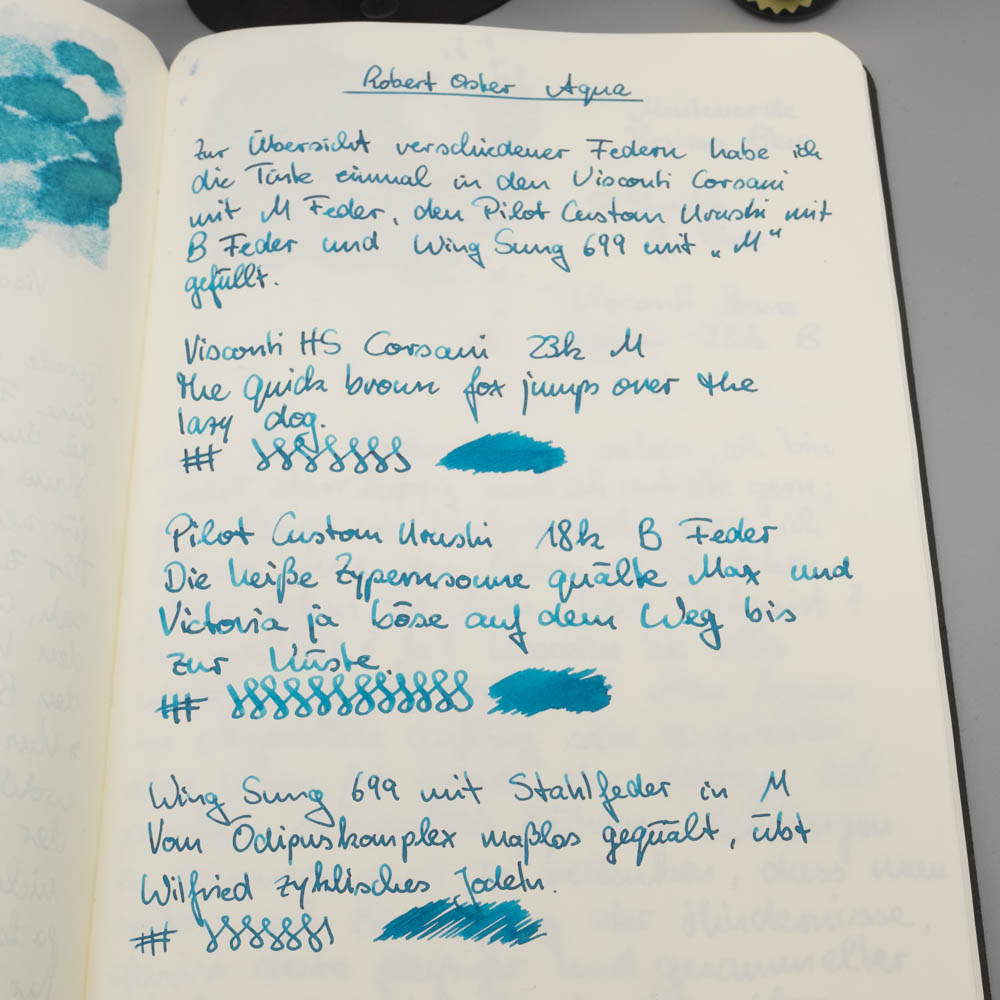 Robert Oster Aqua
Zur Übersicht verschiedener Federn habe ich
die Tinte einmal in den Visconti Corsani
mit M Feder, den Pilot Custom Urushi mit
B Feder und Wing Sung 699 mit „M“
gefüllt.
Visconti HS Corsani 23k M
the quick brown fox jumps over the
lazy dog.
Pilot Custom Urushi 18k B Feder
Die heiße Zypernsonne quälte Max und
Victoria ja böse auf dem Weg bis
zur Küste.
Wing Sung 699 mit Stahlfeder in M
Vom Ödipuskomplex maßlos gequält, übt
Wilfried zyklisches Jodeln.